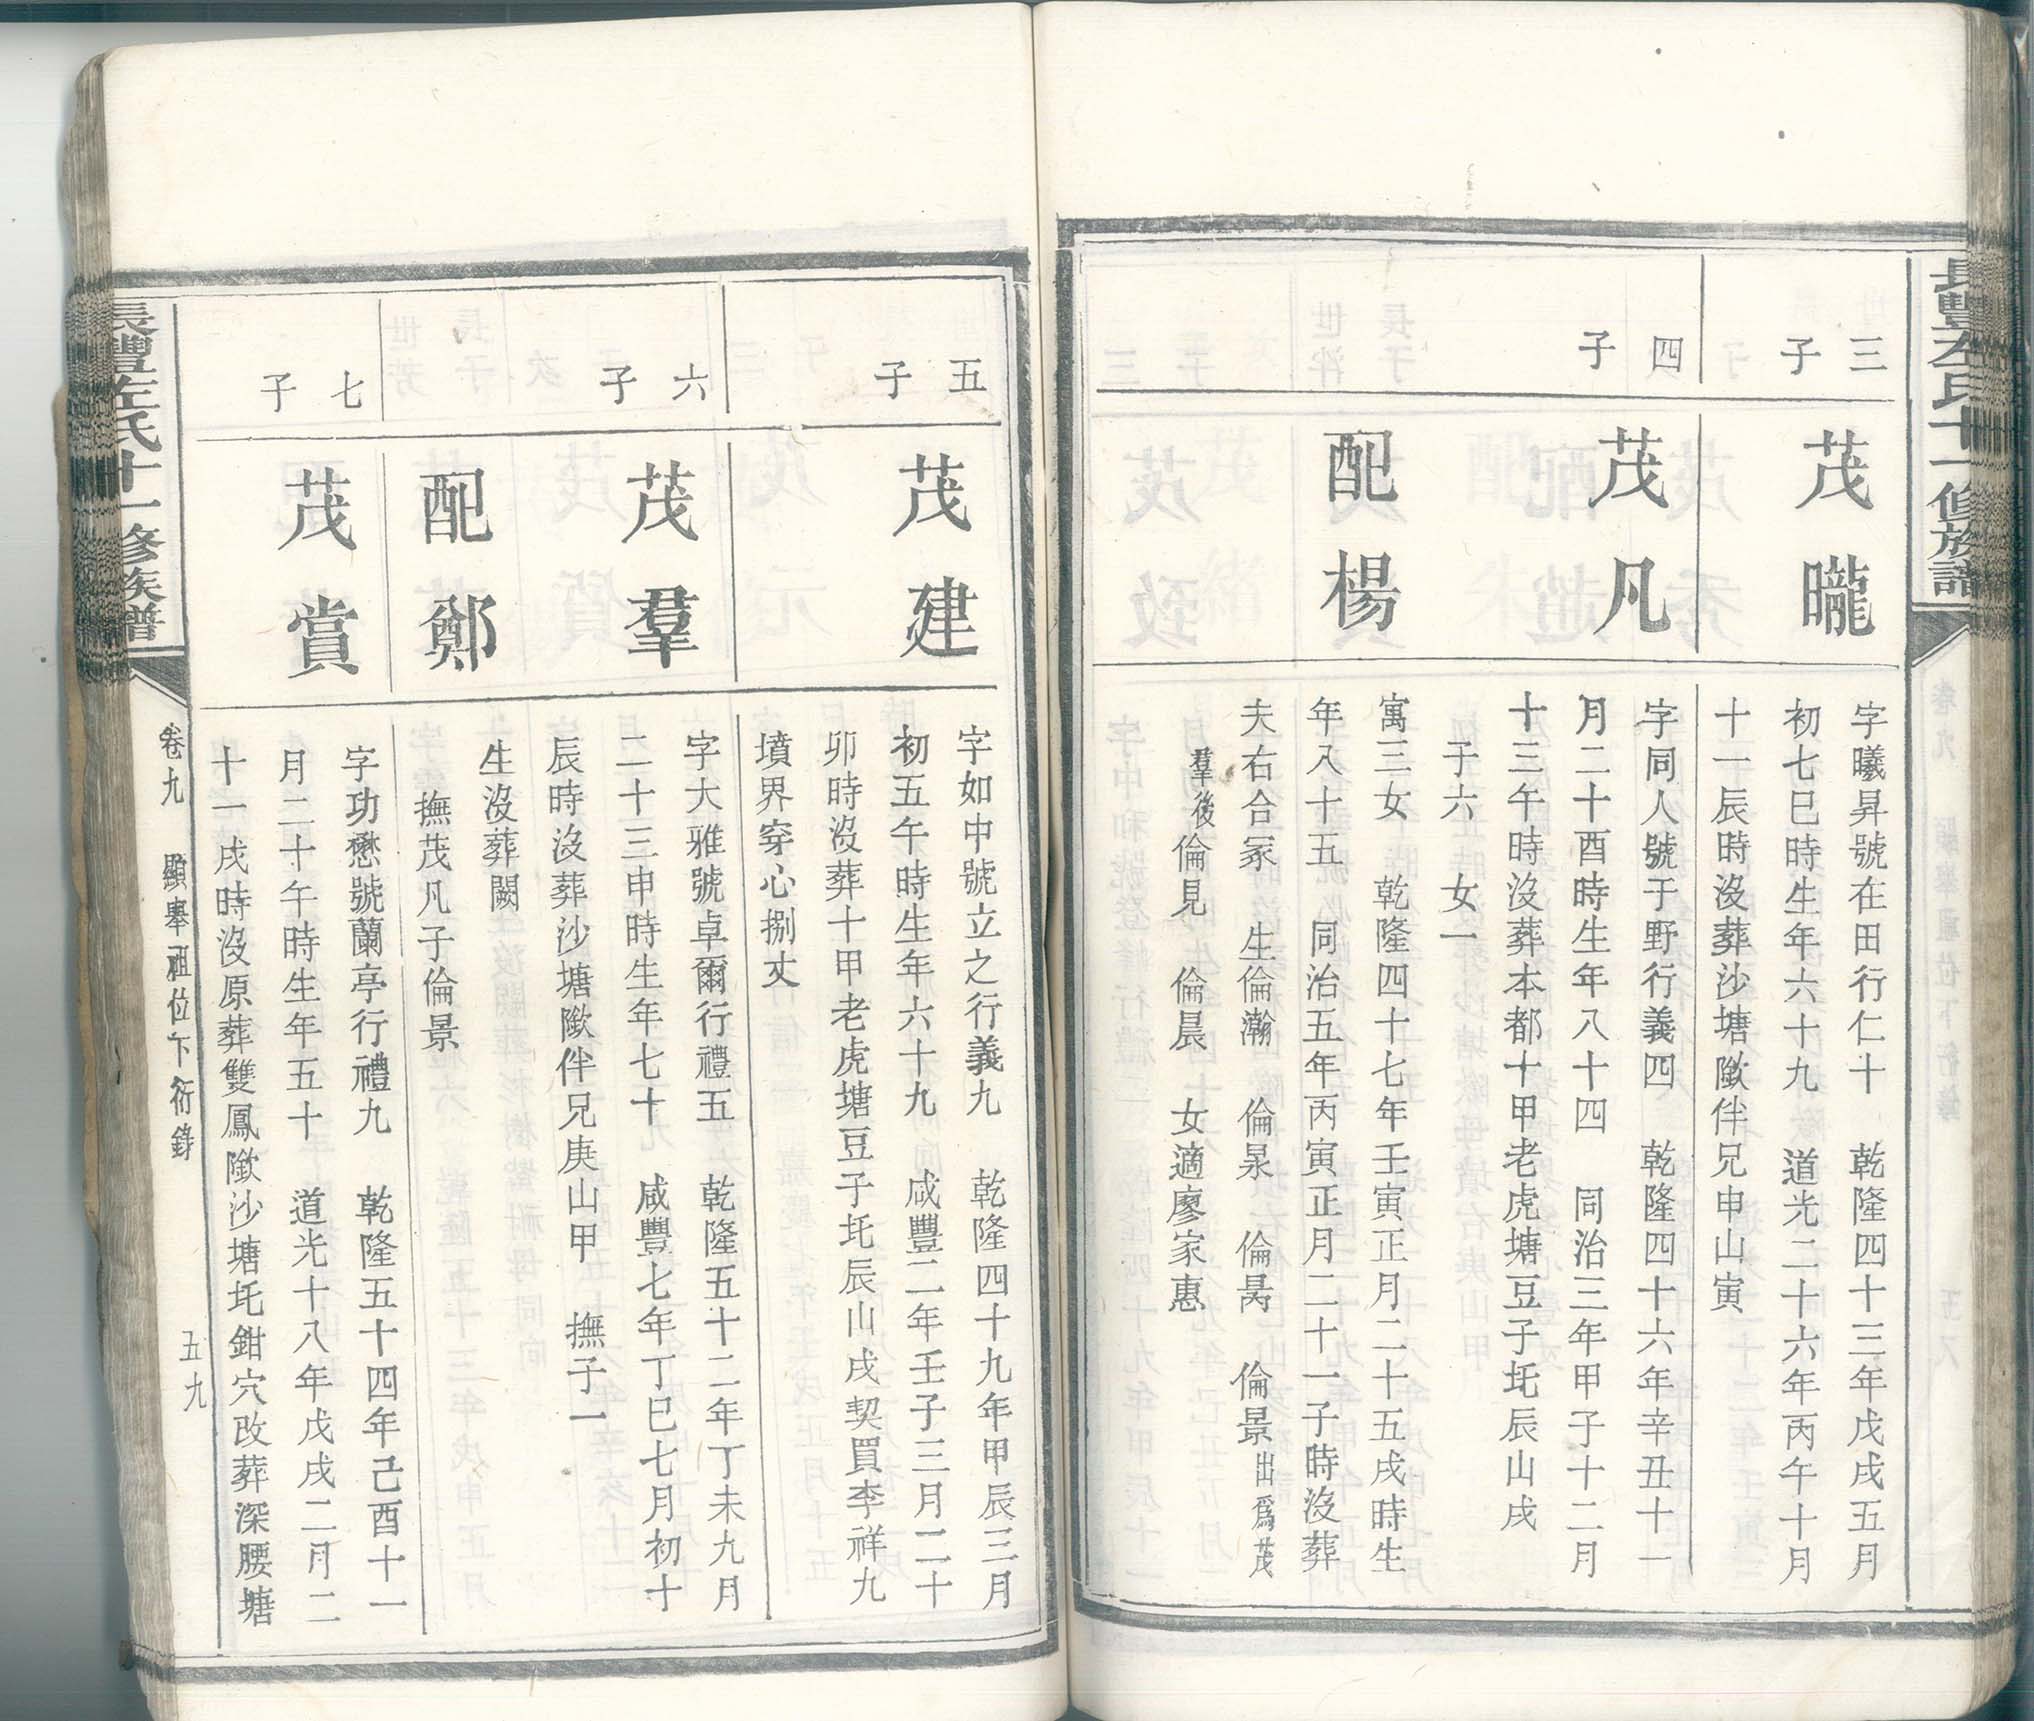 長豐左氏十一修族譜
三子
茂曨
字曦昇號在田行仁十　乾隆四十三年戊戌五月
初七巳時生年六十九　道光二十六年丙午十月
十一辰時沒葬沙塘歘伴兄申山寅
四子
茂凡
字同人號于野行義四　乾隆四十六年辛丑十一
月二十酉時生年八十四　同治三年甲子十二月
十三午時沒葬本都十甲老虎塘豆子圫辰山戌
子六　女一
配楊
寓三女　乾隆四十七年壬寅正月二十五戌時生
年八十五　同治五年丙寅正月二十一子時沒葬
夫右合冢　生倫瀚　倫杲　倫昺　倫景出爲茂
羣後倫見　倫晨　女適廖家惠
五子
茂建
字如中號立之行義九　乾隆四十九年甲辰三月
初五午時生年六十九　咸豐二年壬子三月二十
卯時沒葬十甲老虎塘豆子圫辰山戌契買李祥九
墳界穿心捌丈
六子
茂羣
字大雅號卓爾行禮五　乾隆五十二年丁未九月
二十三申時生年七十　咸豐七年丁巳七月初十
辰時沒葬沙塘歘伴兄庚山甲　撫子一
配鄭
生沒葬闕
撫茂凡子倫景
七子
茂賞
字功懋號蘭亭行禮九　乾隆五十四年己酉十一
月二十午時生年五十　道光十八年戊戌二月二
十一戌時沒原葬雙鳳歘沙塘圫鉗穴改葬深腰塘
長豐左氏十一修族譜
卷九　顯舉祖位下衍錄　五九